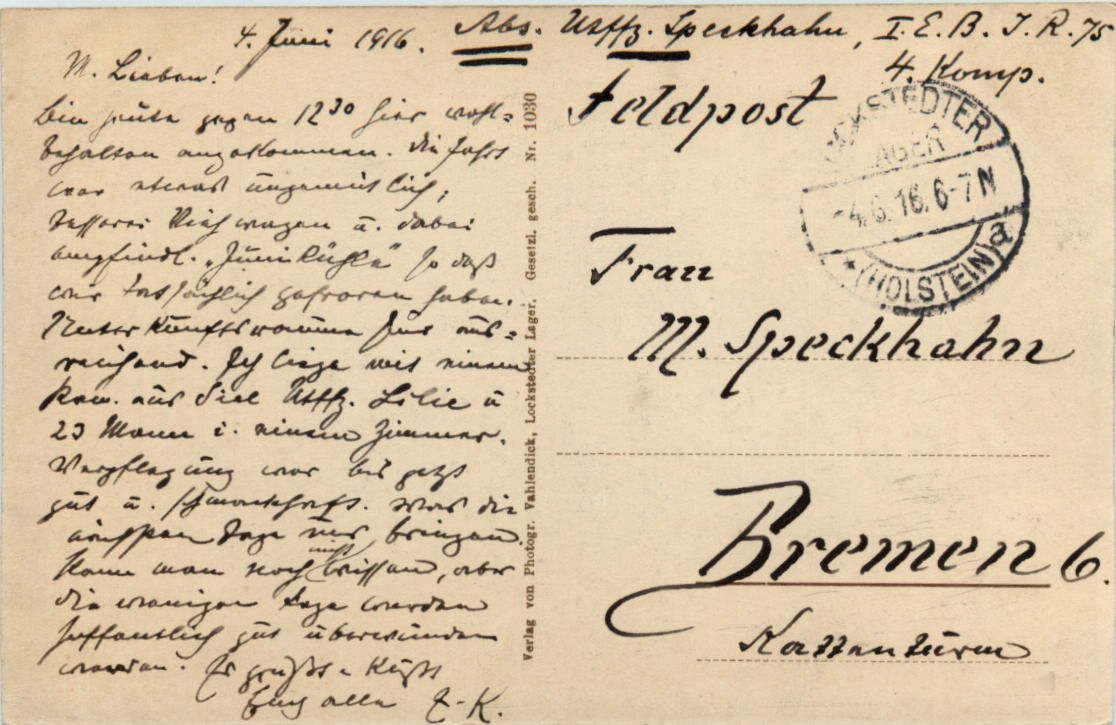 4. Juni 1916. Abs. Utffz. Speckhahn, I. E. B. J. R. 75
4. Komp.
M. Lieben!
bin heute gegen 12³⁰ hier wohl=
behalten angekommen. Die Fahrt
war etwas ungemütlich,
besserer Viehwagen u. dabei
empfindl. „Junikühle“ so daß
wir tatsächlich gefroren haben.
Unterkunftsräume hier aus=
reichend. Ich liege mit einem
Kam. aus Utffz. Lilie u
23 Mann i. einem Zimmer.
Verpflegung war bis jetzt
gut u. schmackhaft. Was die
Tage nur bringen
kann man noch nicht wissen, aber
die wenigen Tage werden
hoffentlich gut überwunden
werden. Es grüßt u küßt
Euch alle
Verlag von Photogr. Vahlendick, Lockstedter Lager. Gesetzl. gesch. Nr. 1030
Feldpost
LOCKSTEDTER
LAGER
-4.6.16.6-7N
* (HOLSTEIN) a
Frau
M. Speckhahn
Bremen 6.
Kattenturm